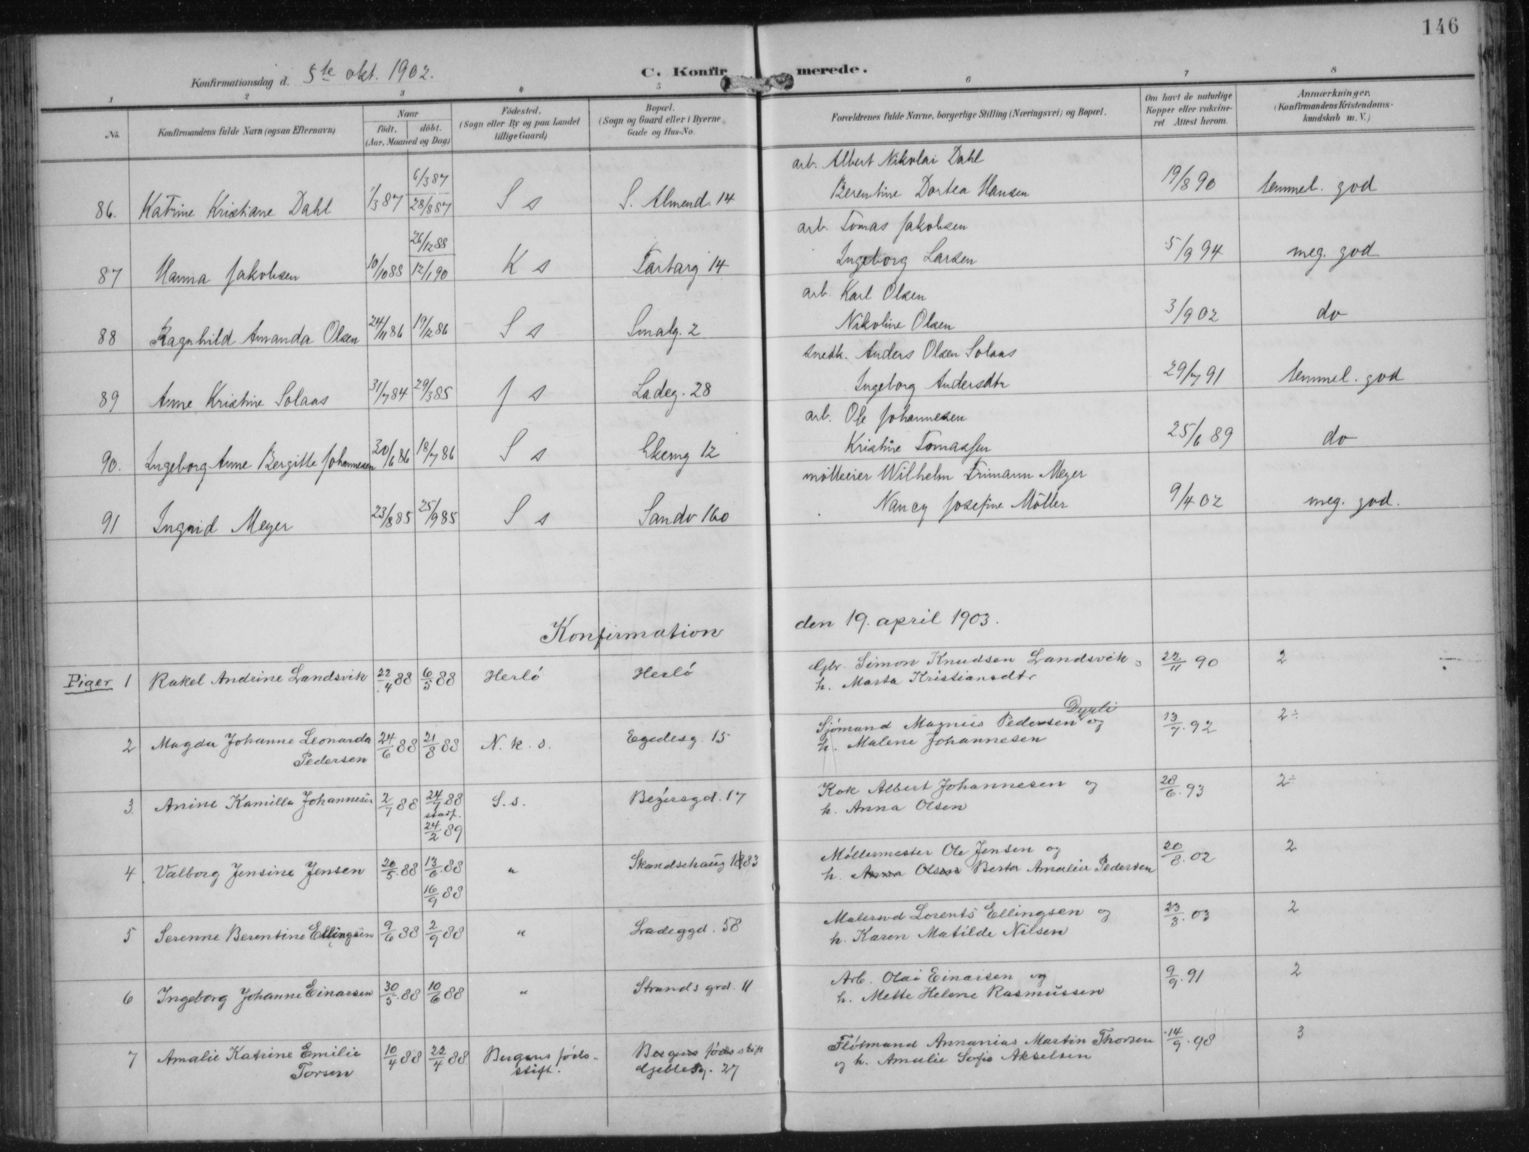 146
Konfirmationsdag d. 5te okt. 1902.
C. Konfirmerede.
1 2 3 4 5 6 7 8
No. Konfirmandens fulde Navn (ogsaa Efternavn) Naar født. døbt. (Aar, Maaned og Dag) Fødested. (Sogn eller By og paa Landet tillige Gaard) Bopæl. (Sogn og Gaard eller i Byerne Gade og Hus-No. Forældrenes fulde Navne, borgerlige Stilling (Næringsvei) og Bopæl. Om havt de naturlige Kopper eller vakcineret Attest herom. Anmærkninger. (Konfirmandens Kristendomskundskab m. V.)
arb. Albert Nikolai Dahl
86. Katrine Kristiane Dahl 1/3 87 6/3 87 28/8 87 S s S. Almend. 14 Berentine Dortea Hansen 19/8 90 temmel. god
arb. Tomas Jakobsen
87 Hanna Jakobsen 10/10 88 26/12 88 12/1 90 K s Tartarg 14 Ingeborg Larsen 5/9 94 meg. god
arb. Karl Olsen
88 Ragnhild Amanda Olsen 24/11 86 19/12 86 S s Smalg. 2 Nikoline Olsen 3/9 02 do
snedk. Anders Olsen Solaas
89 Anne Kristine Solaas 31/7 84 29/3 85 J s Ladeg. 28 Ingeborg Andersdtr 29/7 91 temmel. god
arb. Ole Johannesen
90. Ingeborg Anne Bergitte Johannesen 30/6 86 18/7 86 S s 12 Kristine 25/6 89 do
mølleeier Wilhelm Frimann Meyer
91 Ingrid Meyer 23/8 85 25/9 85 S s Sandv 160 Nancy Josefine Møller 9/4 02 meg. god.
Konfirmation den 19. april 1903.
Piger 1 Rakel Andrine Landsvik 22/4 88 6/5 88 Herlö Herlö Gbr. Simon Knudsen Landsvik o
h. Marta Kristiansdtr 22/11 90 2
2 Magda Johanne Leonarda Pedersen 24/6 88 21/8 88 N. k. s. Egedesg. 15 Sjömand Magnus Pedersen Dyrli og
h. Malene Johannesen 13/7. 92 2÷
3 Anine Kamilla Johannesen 2/7 88 24/7 88 stadf. 24/2 89 S. s. 17 Kok Albert Johannesen og
h. Anna Olsen 28/6. 93 2÷
4 Valborg Jensine Jensen 20/5 88 13/6 88 16/9 88 " Skandsehaug 83 Møllermester Ole Jensen og
h. Anna Olsen Berta Amalie Pedersen 20/8. 02 2
5 Serenne Berentine Ellingsen 9/6 88 2/9 88 " Ladeggd. 58 Malersvd Lorents Ellingsen og
h. Karen Matilde Nilsen 23/3. 03 2
6 Ingeborg Johanne Einarsen 30/5 88 10/6 88 " Strandsgrd. 11 Arb. Olai Einarsen og
h. Mette Helene Rasmussen 9/9. 91 2
7 Amalie Katrine Emilie Torsen 10/4 88 22/4 88 Bergens föds. stift. Bergens föds stift 27 Fløtmand Annanias Martin Thorsen
og h. Amalie Sofie Akselsen 14/9. 98 3